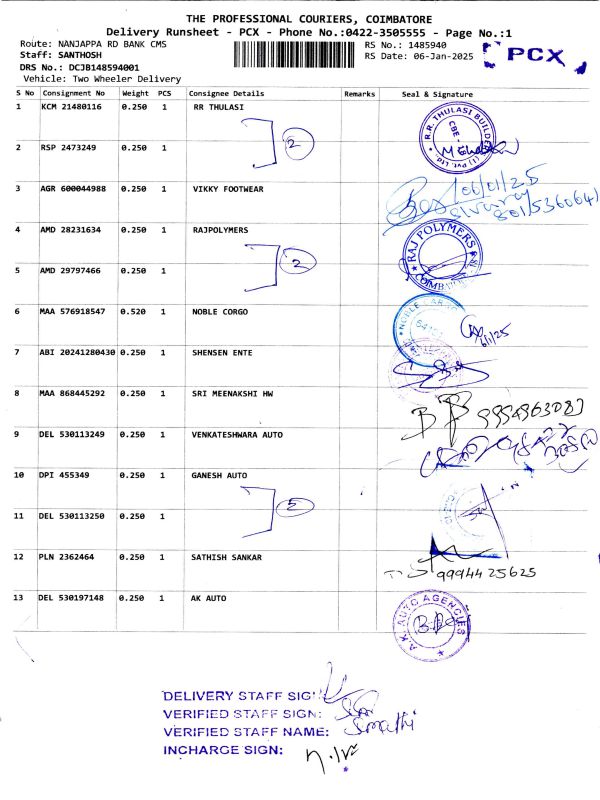 THE PROFESSIONAL COURIERS, COIMBATORE
Delivery Runsheet - PCX - Phone No.:0422-3505555 - Page No.:1
Route: NANJAPPA RD BANK CMS RS No.: 1485940
Staff: SANTHOSH RS Date: 06-Jan-2025
PCX
DRS No.: DCJB148594001
Vehicle: Two Wheeler Delivery
S No Consignment No Weight PCS Consignee Details Remarks Seal & Signature
1 KCM 21480116 0.250 1 RR THULASI
R.R. THULASI BUILDERS (I) Pvt. Ltd
CBE
2
2 RSP 2473249 0.250 1
3 AGR 600044988 0.250 1 VIKKY FOOTWEAR
06/01/25
4 AMD 28231634 0.250 1 RAJPOLYMERS
RAJ POLYMERS
2
5 AMD 29797466 0.250 1
6 MAA 576918547 0.520 1 NOBLE CORGO
6/1/25
7 ABI 20241280430 0.250 1 SHENSEN ENTE
8 MAA 868445292 0.250 1 SRI MEENAKSHI HW
9 DEL 530113249 0.250 1 VENKATESHWARA AUTO
10 DPI 455349 0.250 1 GANESH AUTO
11 DEL 530113250 0.250 1
12 PLN 2362464 0.250 1 SATHISH SANKAR
9994425625
13 DEL 530197148 0.250 1 AK AUTO
A.K. AUTO AGENCIES
DELIVERY STAFF SIGN:
VERIFIED STAFF SIGN:
VERIFIED STAFF NAME: Sumathi
INCHARGE SIGN: